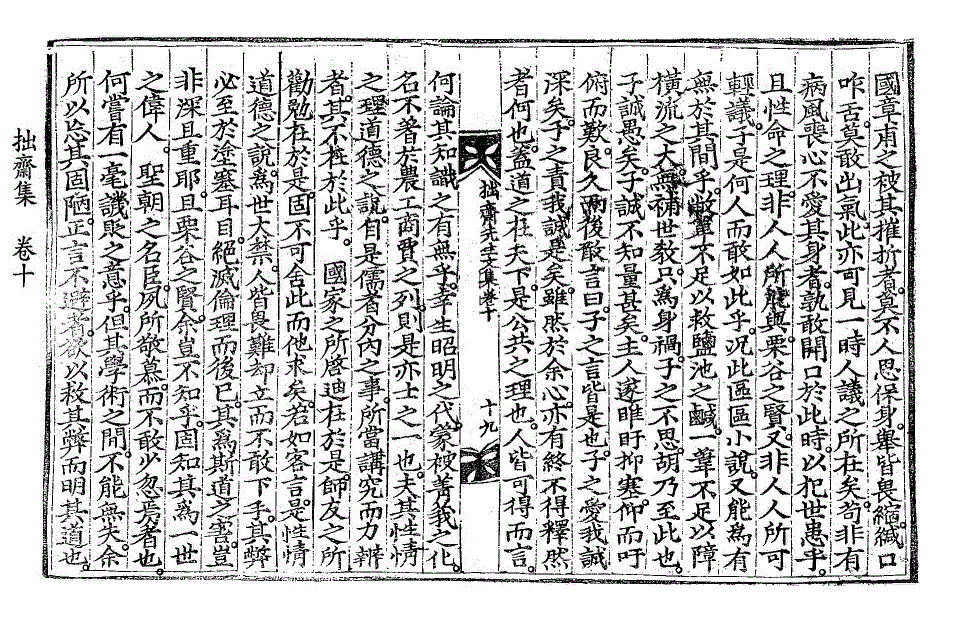 國章甫之被其摧折者莫不人思保身擧皆畏縮緘口
咋舌莫敢出氣此亦可見一時人議之所在矣苟非有
病風喪心不愛其身者孰敢開口於此時以犯世患乎
且性命之理非人人所能與栗谷之賢又非人人所可
輕議子是何人而敢如此乎況此區區小說又能爲有
無於其間乎弊簞不足以救鹽池之鹹一葦不足以障
橫流之大無補世敎只爲身禍子之不思胡乃至此也
子誠愚矣子誠不知量甚矣主人遂睢盱抑塞仰而吁
俯而歎良久而後敢言曰子之言皆是也子之愛我誠
深矣子之責我誠是矣雖然於余心亦有終不得釋然
者何也蓋道之在天下是公共之理也人皆可得而言
拙齋先生文集卷十
十九
何論其知識之有無乎幸生昭明之代蒙被菁莪之化
名不著於農工商賈之列則是亦士之一也夫其性情
之理道德之說自是儒者分內之事所當講究而力辨
者其不在於此乎 國家之所啓迪在於是師友之所
勸勉在於是固不可舍此而他求矣若如客言是性情
道德之說爲世大禁人皆畏難却立而不敢下手其弊
必至於塗塞耳目絕滅倫理而後已其爲斯道之害豈
非深且重耶且栗谷之賢余豈不知乎固知其爲一世
之偉人 聖朝之名臣夙所敬慕而不敢少忽焉者也
何嘗有一毫譏貶之意乎但其學術之間不能無失余
所以忘其固陋正言不避者欲以救其弊而明其道也
拙齋集 卷十